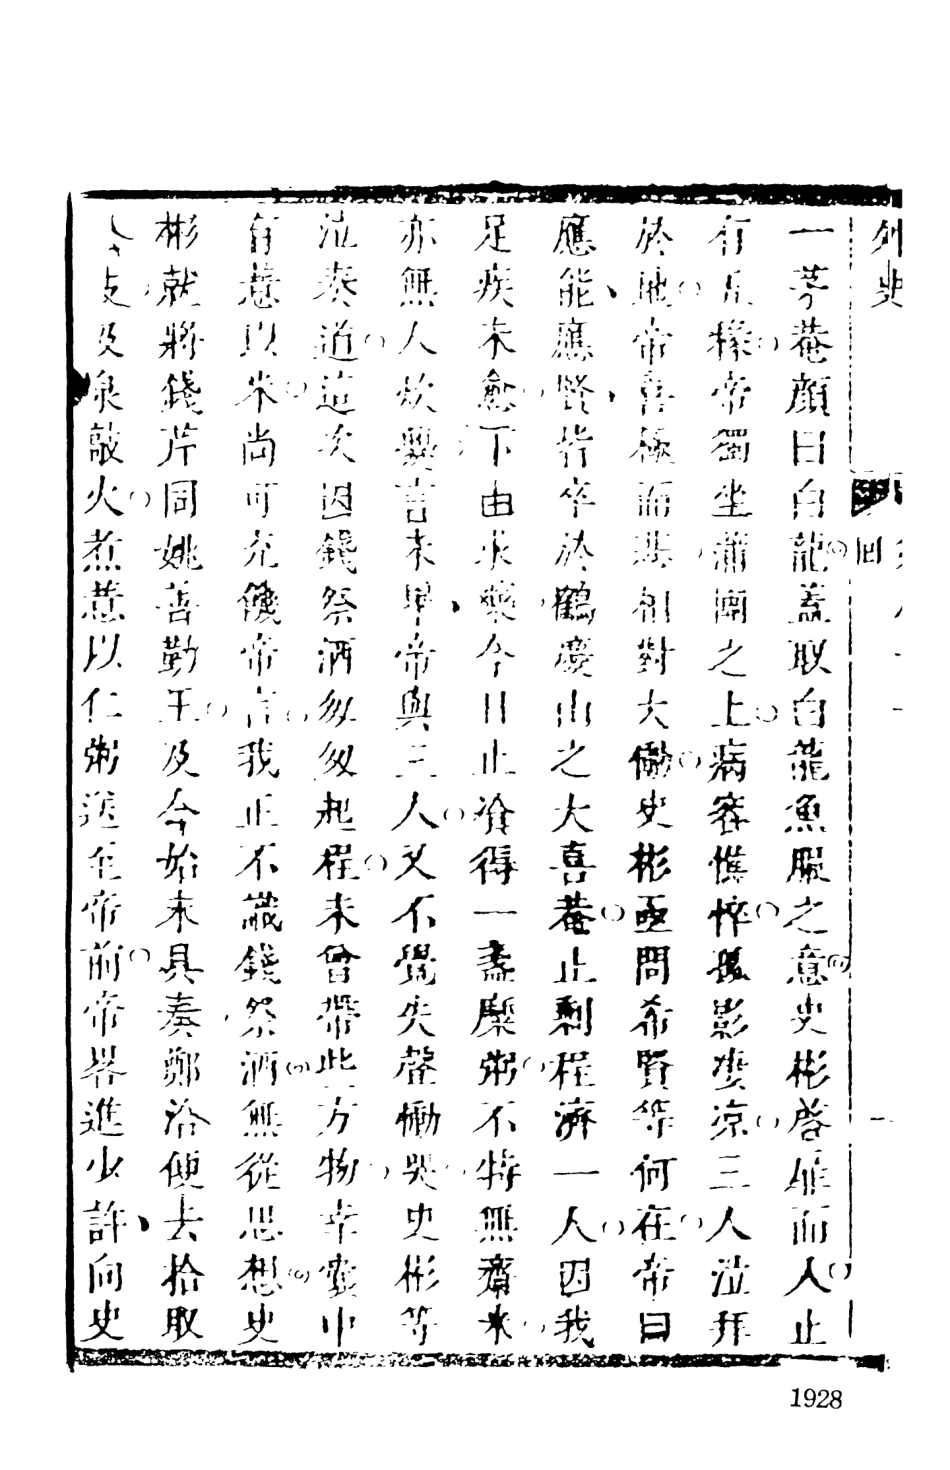 外史 回
一茅菴顏曰白龍蓋取白龍魚服之意史彬啓扉而入止
有五椽帝獨坐蒲團之上病容憔悴孤影凄涼三人泣拜
於地帝喜極而悲相對大慟史彬亟問希賢等何在帝曰
應能應賢皆卒於鶴慶山之大喜菴止剩程濟一人因我
足疾未愈下山求藥今日止飡得一盞糜粥不特無齋米
亦無人炊爨言未畢帝與三人又不覺失聲慟哭史彬等
泣奏道這次因錢祭酒匆匆起程未曾帶些方物幸囊中
有薏苡米尚可充饑帝言我正不識錢祭酒無從思想史
彬就將錢芹同姚善勤王及今始末具奏鄭洽便去拾取
枝及泉敲火煮薏苡仁粥送至帝前帝畧進少許向史
1928